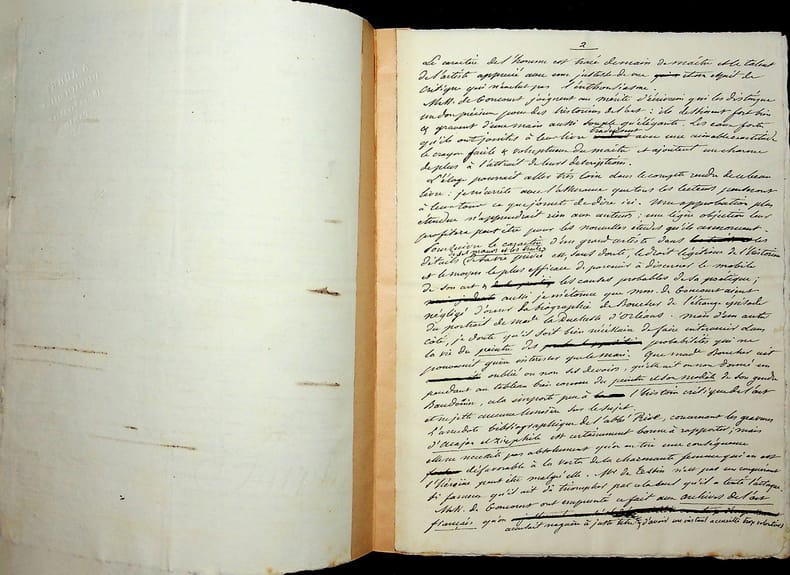 2
Le caractère de l'homme est tracé de main de maître et le talent
de l'artiste apprécié avec une justesse de vue et un esprit de
critique qui n'exclut pas l'enthousiasme.
MM. de Goncourt joignent au mérite d'écrivain qui les distingue
un don précieux pour des historiens de l'art : ils dessinent fort bien
& gravent d'une main aussi souple qu'élégante. Les eaux fortes
qu'ils ont jointes à leur livre traduisent avec une aimable exactitude
le crayon facile & voluptueux du maître et ajoutent un charme
de plus à l'attrait de leurs descriptions.
L'éloge pourrait aller très loin dans le compte rendu de ce beau
livre : je m'arrête avec l'assurance que tous les lecteurs penseront
à leur tour ce que j'omets de dire ici. Une approbation plus
étendue n'apprendrait rien aux auteurs : une légère objection leur
profitera peut être pour les nouvelles études qu'ils annoncent.
Poursuivre le caractère d'un grand artiste dans les
détails de ses mœurs et les de sa vie privée est, sans doute, le droit légitime de l'historien
et le moyen le plus efficace de parvenir à discerner le mobile
de son art & les causes probables de sa poétique ;
aussi je m'étonne que MM. de Goncourt aient
négligé d'orner la biographie de Boucher de l'étrange épisode
du portrait de made la Duchesse d'Orléans. Mais d'un autre
côté, je doute qu'il soit bien nécessaire de faire intervenir dans
la vie du peintre des probabilités qui ne
pouvaient qu'en intéresser que le mari. Que made Boucher ait
oublié ou non ses devoirs, qu'elle ait ou non donné un
pendant au tableau bien connu du peintre et son modèle de son gendre
Baudouin, cela importe peu à l'histoire critique de l'art
et ne jette aucune lumière sur le sujet.
L'anecdote bibliographique de l'abbé Rive, concernant les gravures
d'Acajou et Zirphile est certainement bonne à rapporter ; mais
elle ne nécessite pas absolument qu'on en tire une conséquence
défavorable à la vertu de la charmante femme qui en est
l'héroïne peut être malgré elle. Mr de Tessin n'est pas un conquérant
si fameux qu'il ait dû triompher par cela seul qu'il a tenté l'attaque.
MM. de Goncourt ont emprunté ce fait aux archives de l'art
français, qu'on